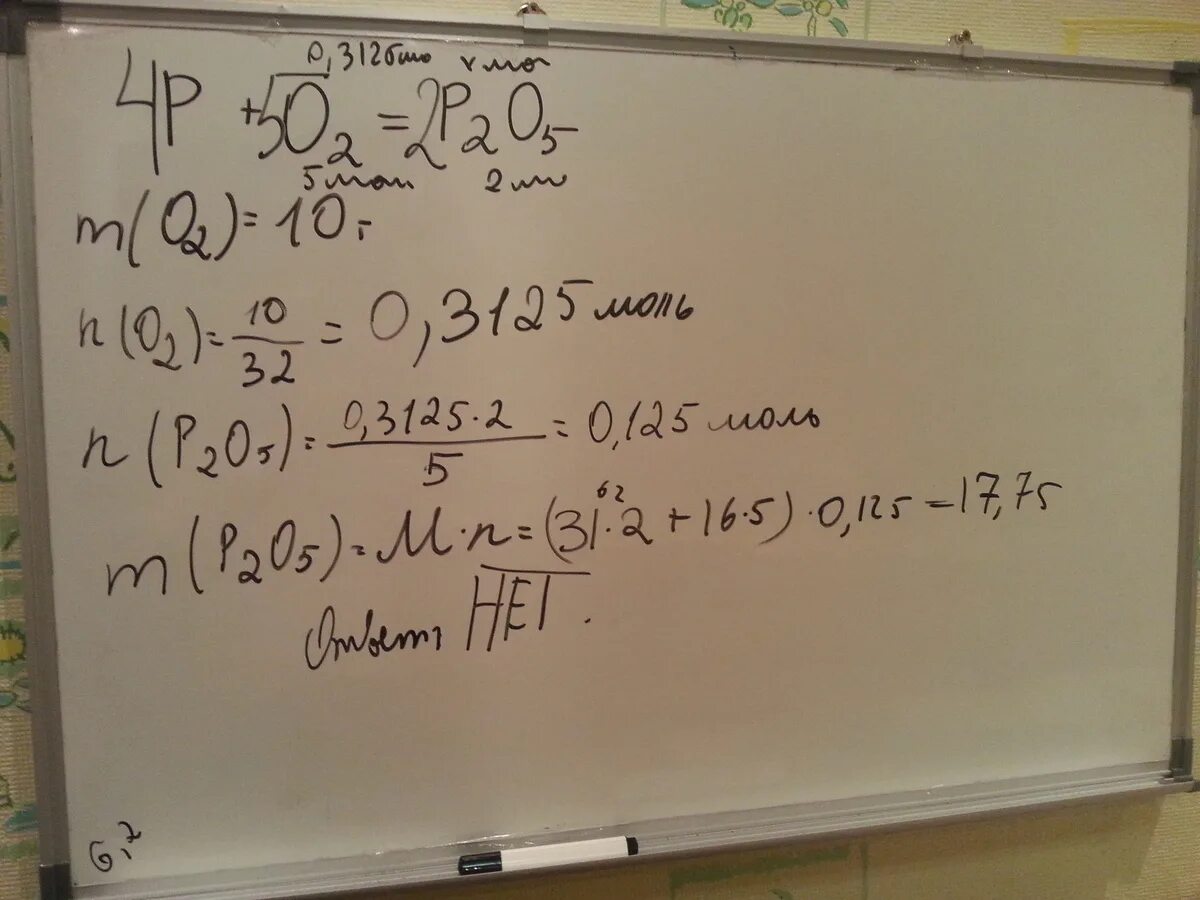 0,3125мо х мол
4P + 5O₂ = 2P₂O₅
5 мол 2 мл
m(O₂) = 10 г
n(O₂) = 10/32 = 0,3125 моль
n(P₂O₅) = 0,3125·2/5 = 0,125 моль
62
m(P₂O₅) = M·n = (31·2 + 16·5)·0,125 = 17,75
Ответ НЕТ.